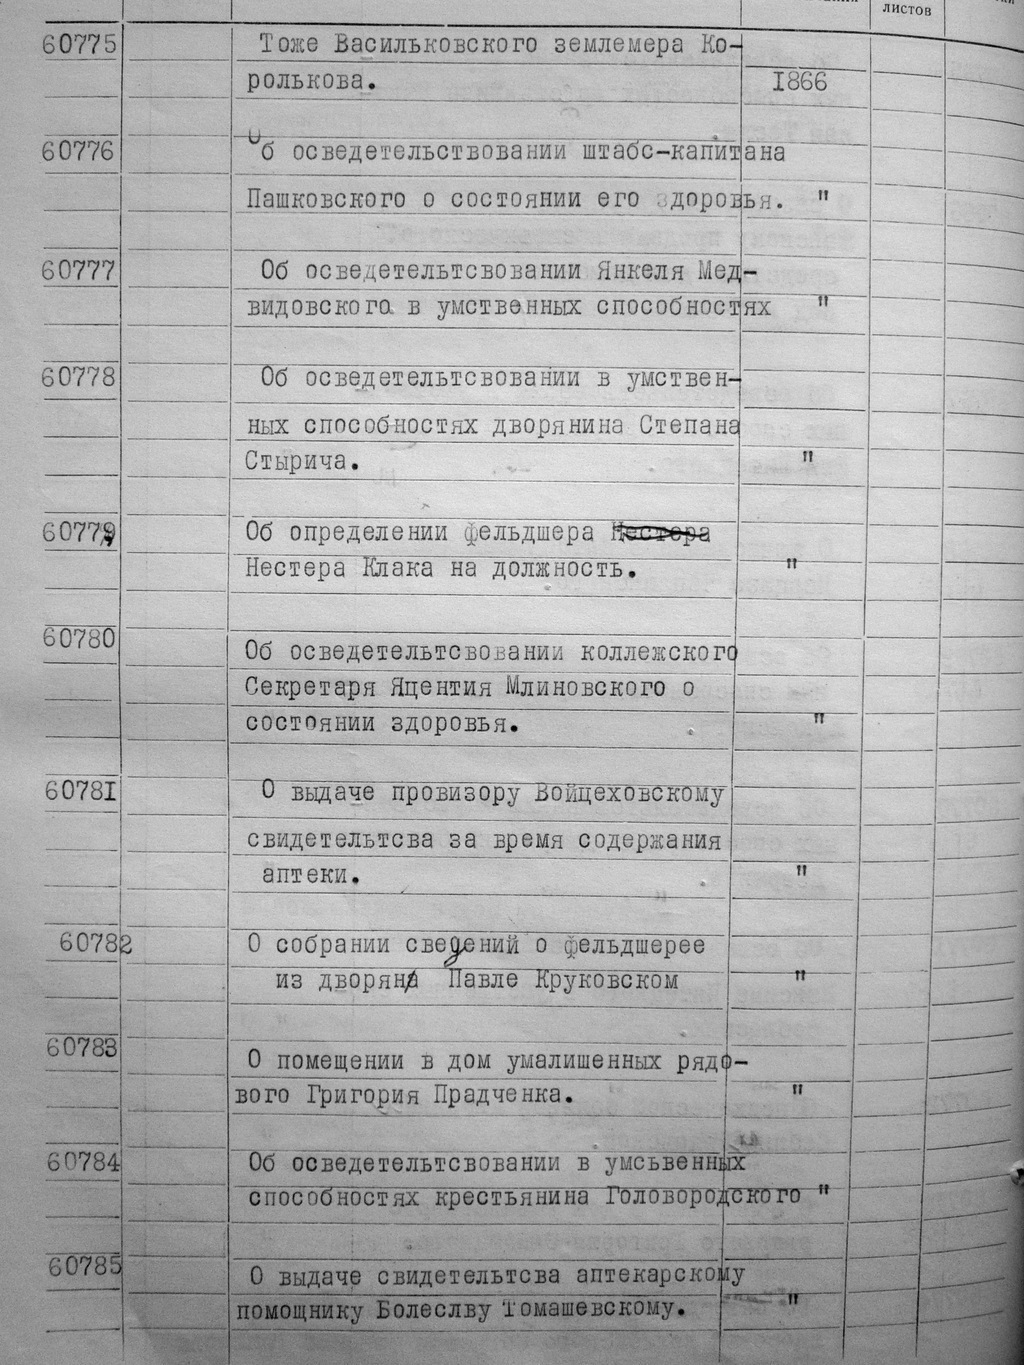 листов
60775 Тоже Васильковского землемера Ко-
ролькова. 1866
60776 Об осведетельствовании штабс-капитана
Пашковского о состоянии его здоровья. "
60777 Об осведетельтсвовании Янкеля Мед-
видовского в умственных способностях "
60778 Об осведетельтсвовании в умствен-
ных способностях дворянина Степана
Стырича. "
60779 Об определении фельдшера Нестера
Нестера Клака на должность. "
60780 Об осведетельтсвовании коллежского
Секретаря Яцентия Млиновского о
состоянии здоровья. "
60781 О выдаче провизору Войцеховскому
свидетельтсва за время содержания
аптеки. "
60782 О собрании сведений о фельдшерее
из дворян Павле Круковском "
60783 О помещении в дом умалишенных рядо-
вого Григория Прадченка. "
60784 Об осведетельтсвовании в умсьвенных
способностях крестьянина Головородского "
60785 О выдаче свидетельтсва аптекарскому
помощнику Болеслву Томашевскому. "